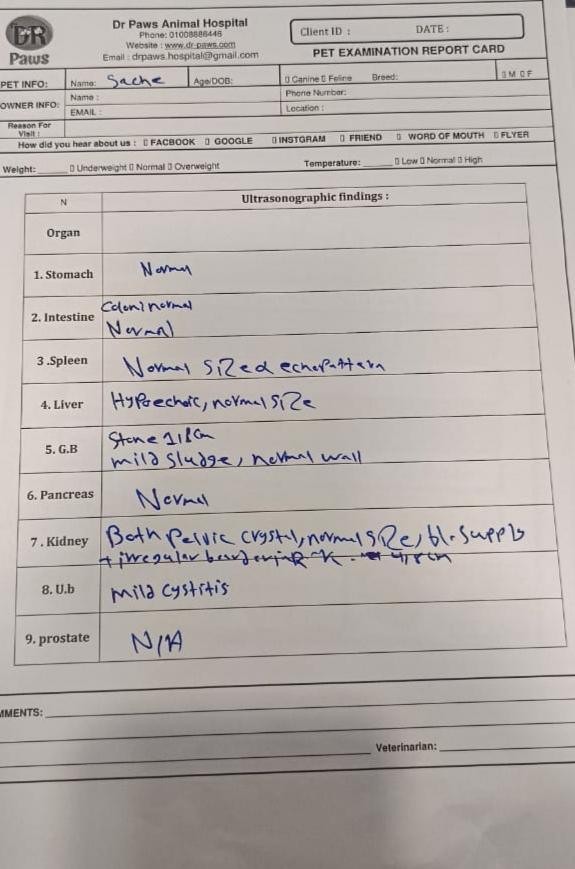 DR
Paws
Dr Paws Animal Hospital
Phone: 01008886446
Website : www.dr-paws.com
Email : drpaws.hospital@gmail.com
Client ID : DATE :
PET EXAMINATION REPORT CARD
PET INFO: Name: Sache Age/DOB: Canine Feline Breed: M F
OWNER INFO: Name : Phone Number:
EMAIL : Location :
Reason For
Visit :
How did you hear about us : FACBOOK GOOGLE INSTGRAM FRIEND WORD OF MOUTH FLYER
Weight: Underweight Normal Overweight Temperature: Low Normal High
N Ultrasonographic findings :
Organ
1. Stomach Normal
2. Intestine Colon: normal
Normal
3 .Spleen Normal sized echopattern
4. Liver Hypoechoic, normal size
5. G.B Stone 1,18cm
mild sludge, normal wall
6. Pancreas Normal
7 . Kidney Both Pelvic crystal, normal size, bl. supply
+ irregular 4,8 cm
8. U.b Mild cystitis
9. prostate N/A
MMENTS:
Veterinarian: